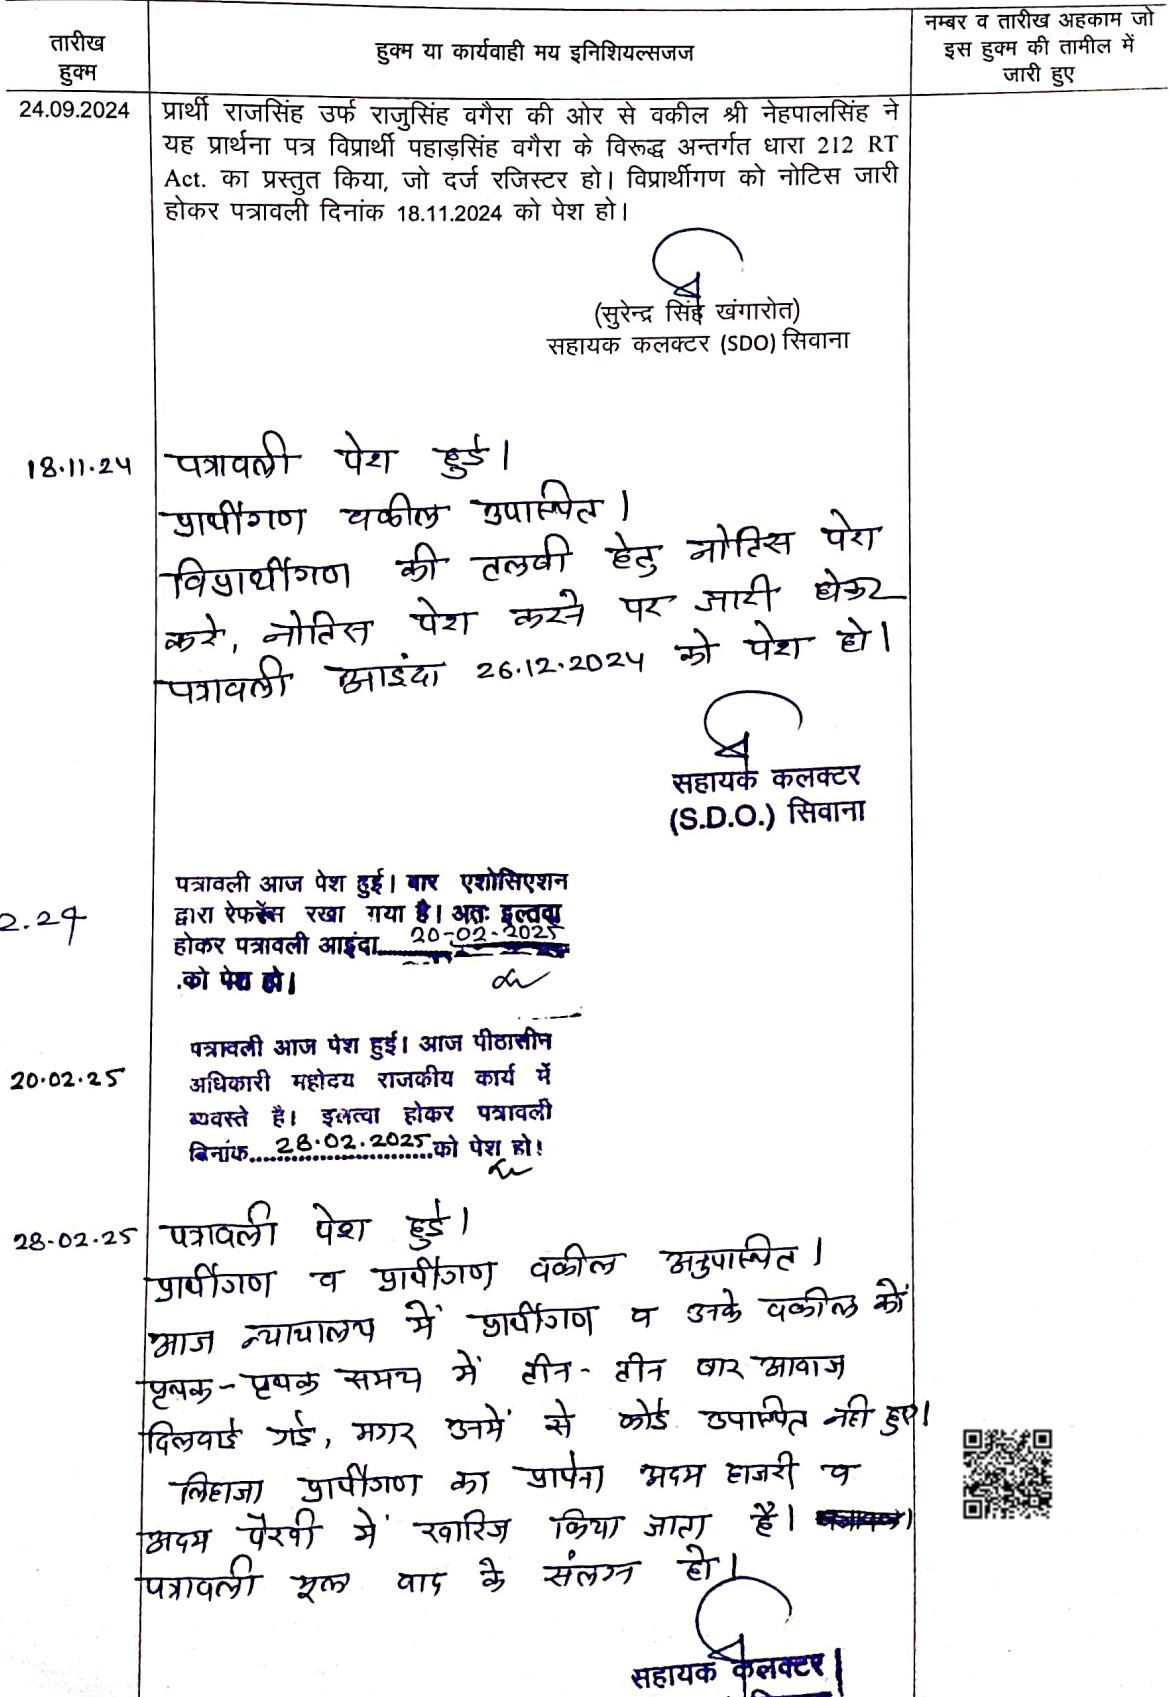 तारीख
हुक्म
हुक्म या कार्यवाही मय इनिशियल्सजज
नम्बर व तारीख अहकाम जो
इस हुक्म की तामील में
जारी हुए
24.09.2024
प्रार्थी राजसिंह उर्फ राजुसिंह वगैरा की ओर से वकील श्री नेहपालसिंह ने
यह प्रार्थना पत्र विप्रार्थी पहाड़सिंह वगैरा के विरूद्ध अन्तर्गत धारा 212 RT
Act. का प्रस्तुत किया, जो दर्ज रजिस्टर हो। विप्रार्थीगण को नोटिस जारी
होकर पत्रावली दिनांक 18.11.2024 को पेश हो।
(सुरेन्द्र सिंह खंगारोत)
सहायक कलक्टर (SDO) सिवाना
18.11.24
पत्रावली पेश हुई।
प्रार्थीगण वकील उपस्थित।
विप्रार्थीगण की तलबी हेतु नोटिस पेश
करे, नोटिस पेश करने पर जारी होकर
पत्रावली आइंदा 26.12.2024 को पेश हो।
सहायक कलक्टर
(S.D.O.) सिवाना
2.24
पत्रावली आज पेश हुई। बार एशोसिएशन
द्वारा ऐफरेंस रखा गया है। अतः इल्तवा
होकर पत्रावली आइंदा 20-02-2025
को पेश हो।
20.02.25
पत्रावली आज पेश हुई। आज पीठासीन
अधिकारी महोदय राजकीय कार्य में
व्यवस्ते है। इलत्वा होकर पत्रावली
दिनांक 28.02.2025 को पेश हो!
28.02.25
पत्रावली पेश हुई।
प्रार्थीगण व प्रार्थीगण वकील अनुपस्थित।
आज न्यायालय में प्रार्थीगण व उनके वकील को
पृथक-पृथक समय में तीन-तीन बार आवाज
दिलवाई गई, मगर उनमें से कोई उपस्थित नही हुए।
लिहाजा प्रार्थीगण का प्रार्थना अदम हाजरी व
अदम पैरवी में खारिज किया जाता है।
पत्रावली मूल वाद के संलग्न हो।
सहायक कलक्टर